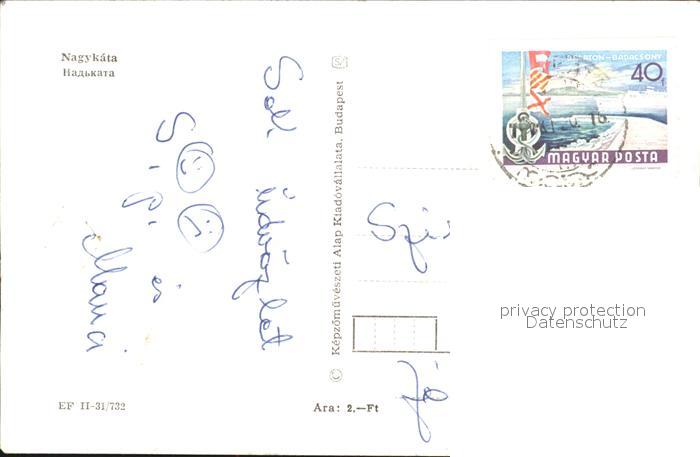 Nagykáta
Надьката
Sok
üdvözlet
Sipi és
Manci
EF II-31/732
Ara: 2.—Ft
© Képzőművészeti Alap Kiadóvállalata, Budapest
BALATON—BADACSONY
40f
MAGYAR POSTA
Szi
privacy protection
Datenschutz